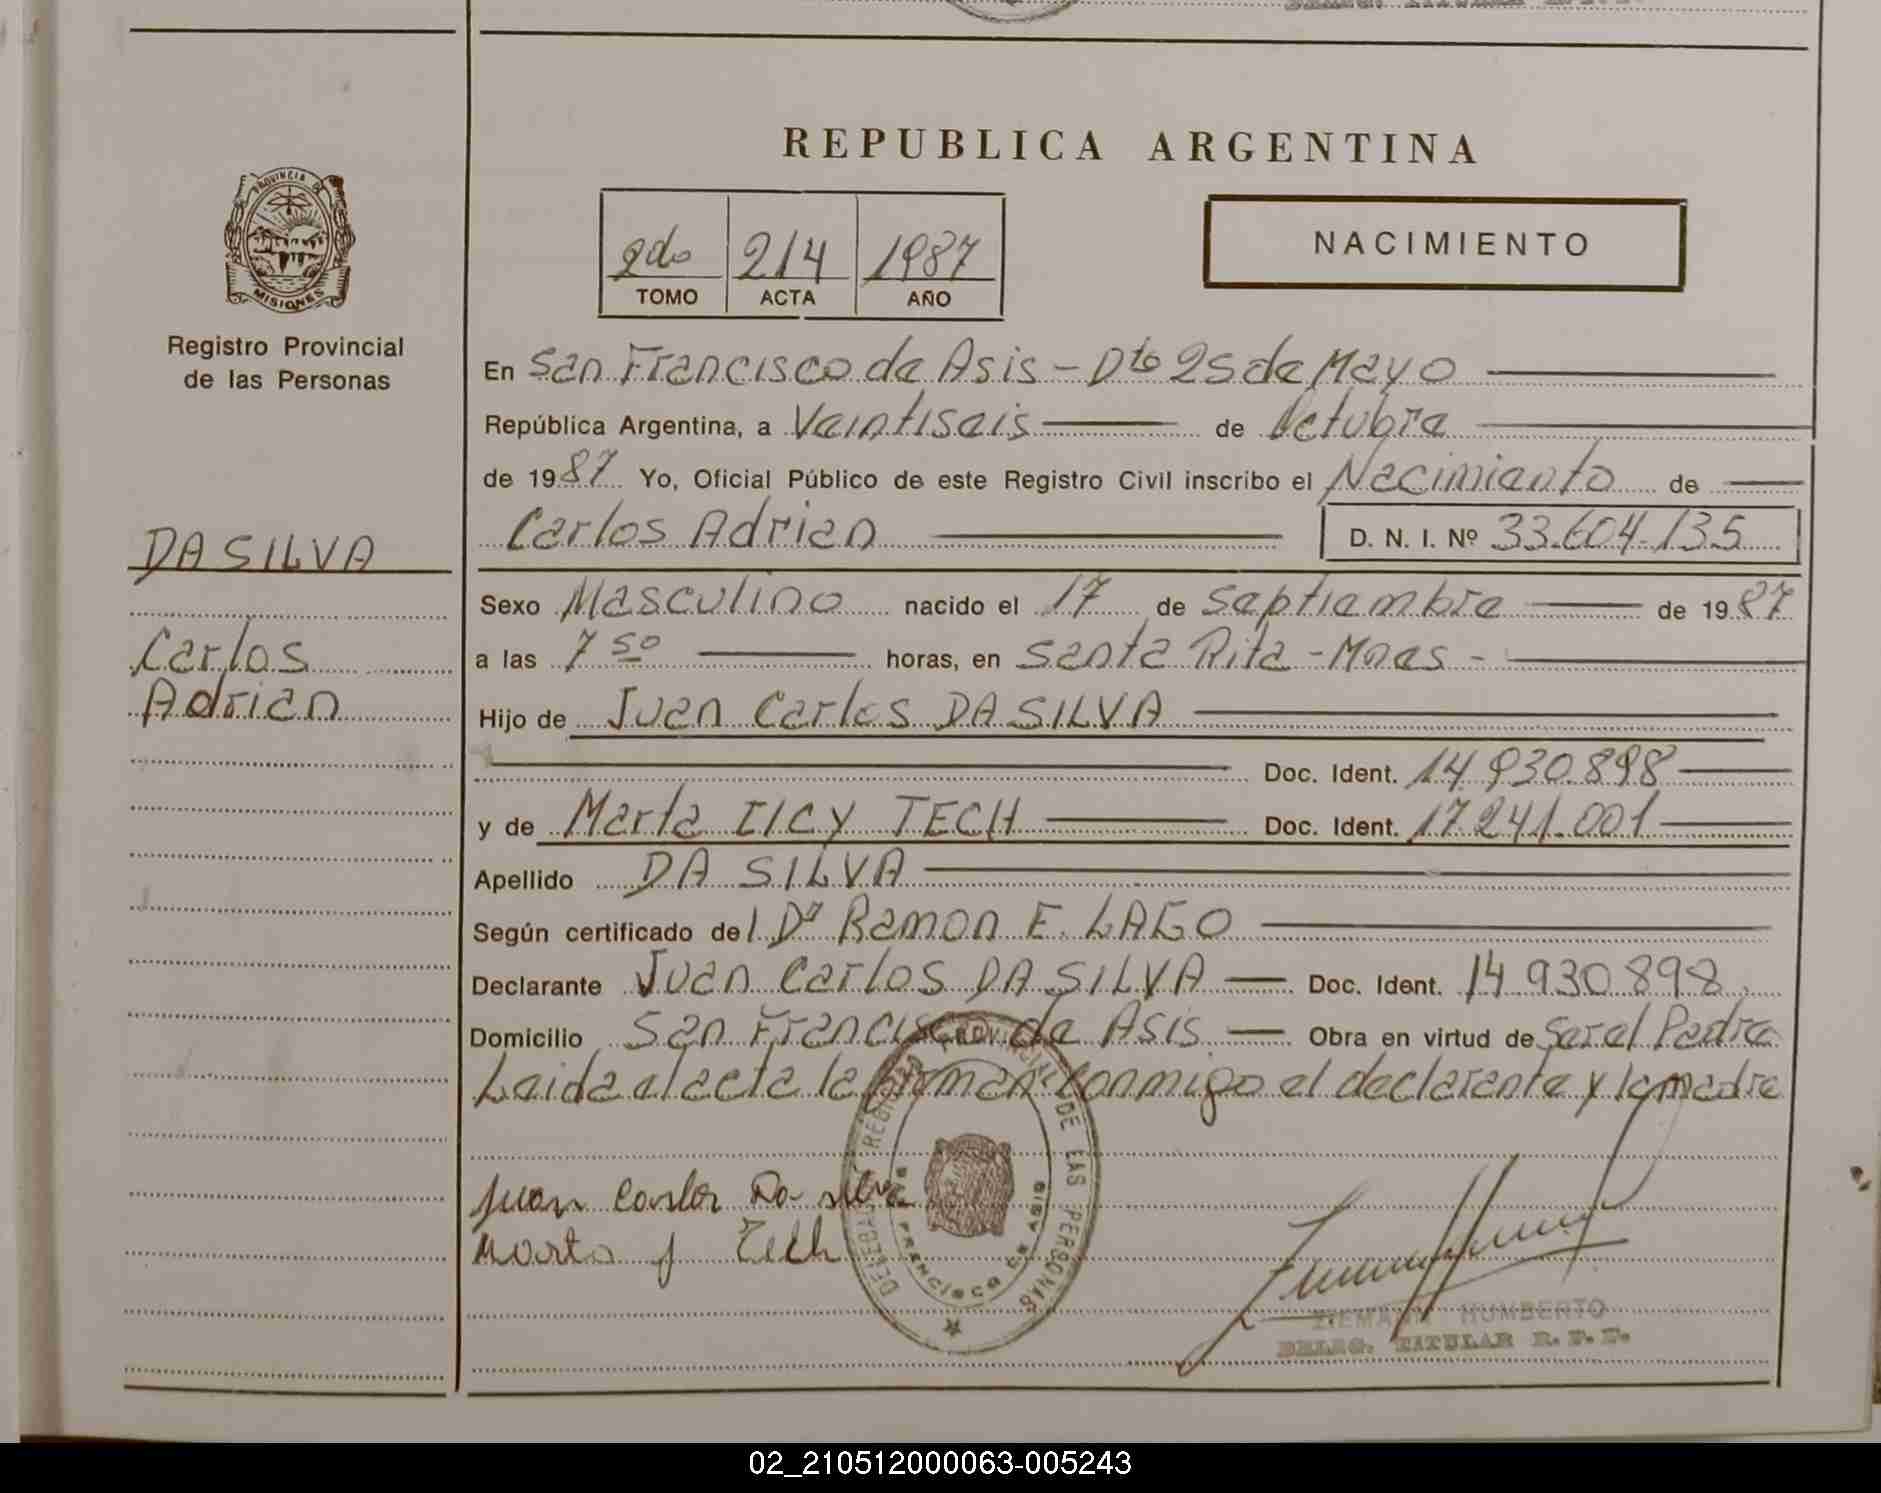 REPUBLICA ARGENTINA
PROVINCIA DE
MISIONES
Registro Provincial
de las Personas
2do 214 1987
TOMO ACTA AÑO
NACIMIENTO
En San Francisco de Asis - Dto 25 de Mayo
República Argentina, a Veintiseis de Octubre
de 1987 Yo, Oficial Público de este Registro Civil inscribo el Nacimiento de
Carlos Adrian D. N. I. Nº 33.604.135
DA SILVA
Carlos
Adrian
Sexo Masculino nacido el 17 de Septiembre de 1987
a las 7 50 horas, en Santa Rita - Mnes -
Hijo de Juan Carlos DA SILVA
Doc. Ident. 14.930.898
y de Marta TECH Doc. Ident. 17.241.001
Apellido DA SILVA
Según certificado del Dr Ramon E. LAGO
Declarante Juan Carlos DA SILVA Doc. Ident. 14.930.898
Domicilio San Francisco de Asis Obra en virtud de Ser el Padre
Leida el acta la firman conmigo el declarante y la madre
Juan Carlos Da Silva
Marta Tech
REGISTRO PROVINCIAL DE LAS PERSONAS
FRANCISCO DE ASIS
ZIEMANN HUMBERTO
DELEG. TITULAR R. P. P.
02_210512000063-005243